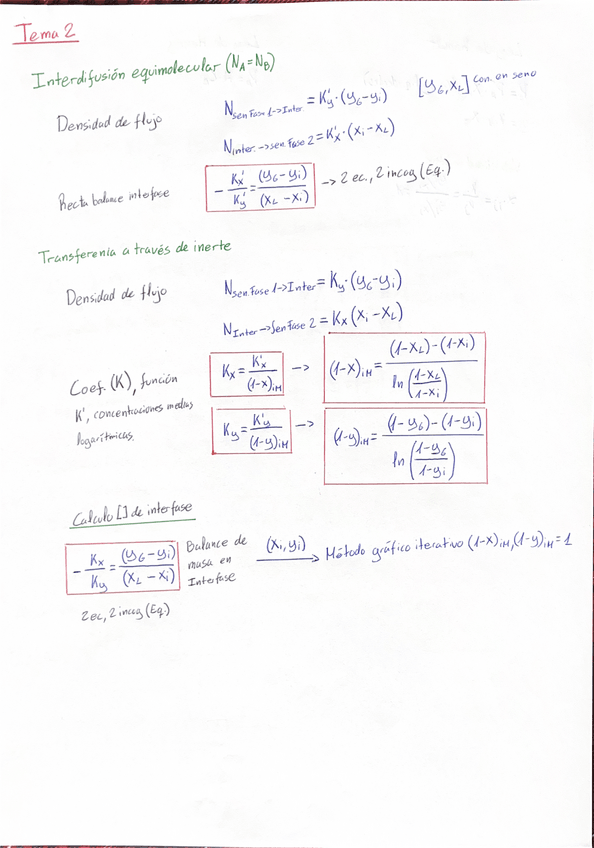 Tema 2
Interdifusión equimolecular (N_A=N_B)
Densidad de flujo
N_sen Fase 1→Inter. = K'_y·(y_G-y_i) [y_G, x_L] con. en seno
N_inter.→sen. Fase 2 = K'_x·(x_i-x_L)
Recta balance interfase
-K'_x/K'_y = (y_G-y_i)/(x_L-x_i) → 2 ec., 2 incog (Eq.)
Transferenia a través de inerte
Densidad de flujo
N_sen. Fase 1→Inter = K_y·(y_G-y_i)
N_Inter→sen Fase 2 = K_x(x_i-x_L)
Coef. (K), función
K', concentraciones medias
logarítmicas.
K_x = K'_x/(1-x)_iM → (1-x)_iM = ((1-x_L)-(1-x_i))/ln((1-x_L)/(1-x_i))
K_y = K'_y/(1-y)_iM → (1-y)_iM = ((1-y_G)-(1-y_i))/ln((1-y_G)/(1-y_i))
Calculo [] de interfase
-K_x/K_y = (y_G-y_i)/(x_L-x_i)
Balance de
masa en
Interfase
(x_i, y_i) → Método gráfico iterativo (1-x)_iM, (1-y)_iM = 1
2 ec, 2 incog (Eq.)